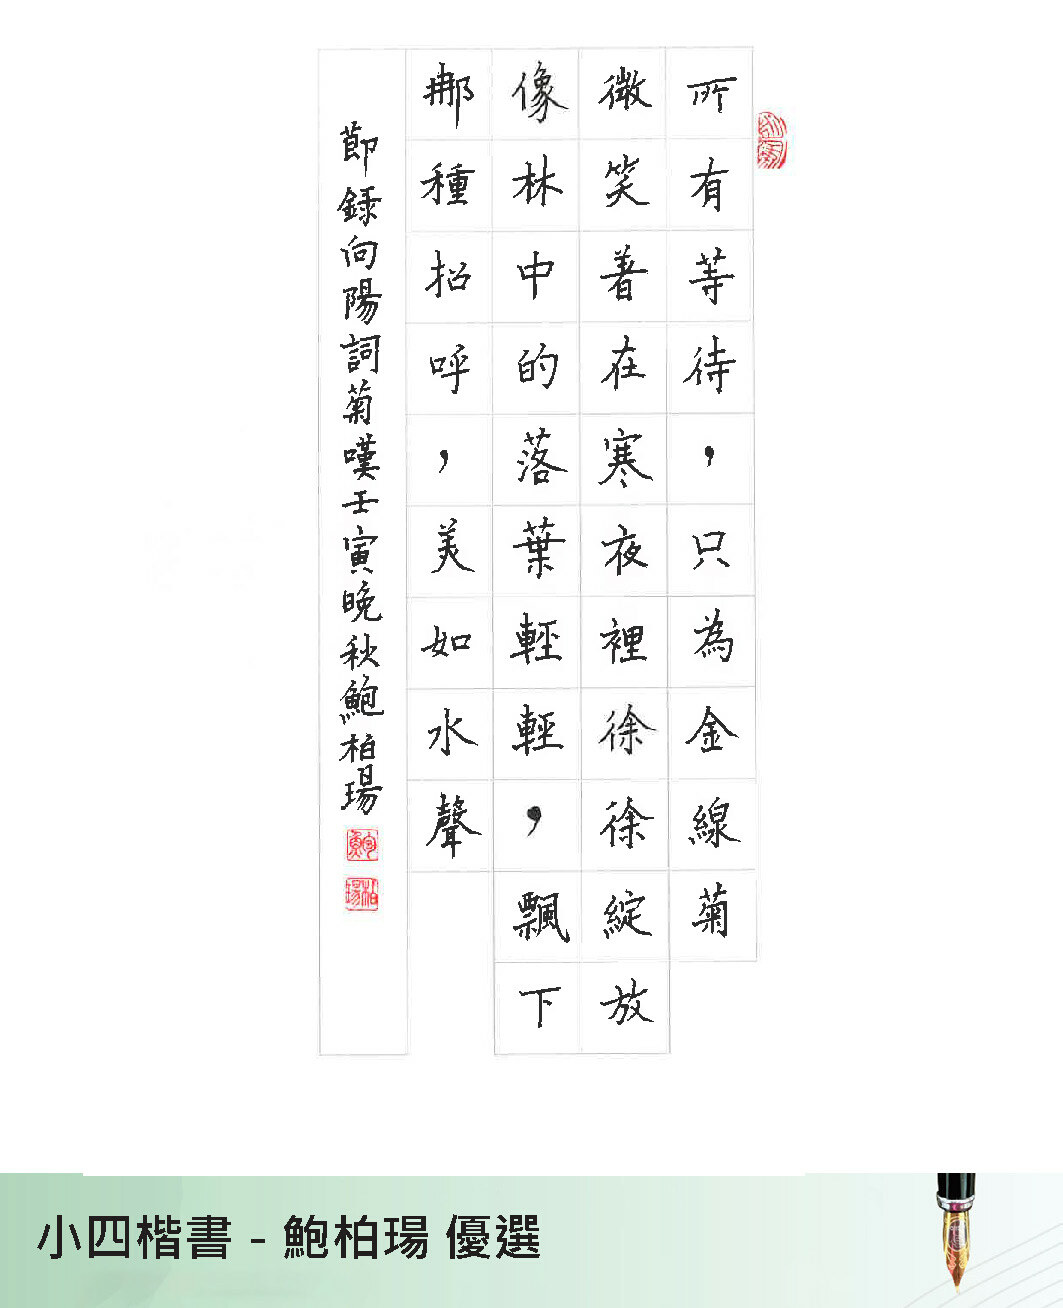 所有等待，只為金線菊
微笑着在寒夜裡徐徐綻放
像林中的落葉輕輕，飄下
那種招呼，美如水聲
節錄向陽詞菊嘆壬寅晚秋鮑柏瑒
鮑
柏瑒
小四楷書 - 鮑柏瑒 優選